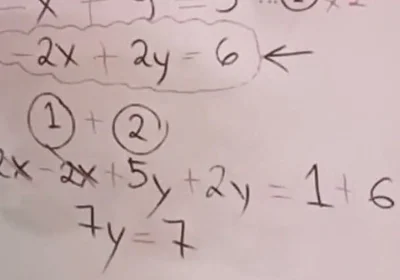 -x + y = 3 ...② × 2
-2x + 2y = 6 ←
① + ②
2x - 2x + 5y + 2y = 1 + 6
7y = 7